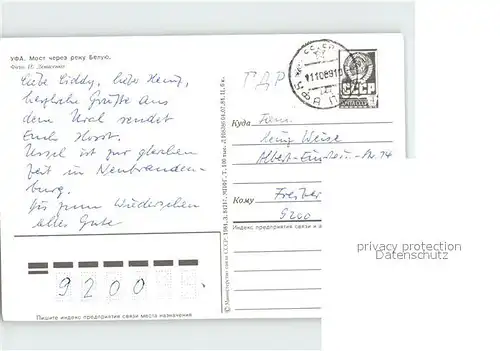 УФА. Мост через реку Белую.
Фото И. Денисенко
Liebe Liddy, lieber Heinz,
herzliche Grüße aus
dem Ural sendet
Euch Horst.
Ursel ist zur gleichen
Zeit in Neubranden-
burg.
Bis zum Wiedersehen
alles Gute
ГДР
СССР
УФА
111089
СССР
Куда Fam.
Heinz Weise
Albert-Einstein-Str. 14
Кому Freiberg
9200
Индекс предприятия связи и а
privacy protection
Datenschutz
9200
Пишите индекс предприятия связи места назначения
© Министерство связи СССР. 1984.